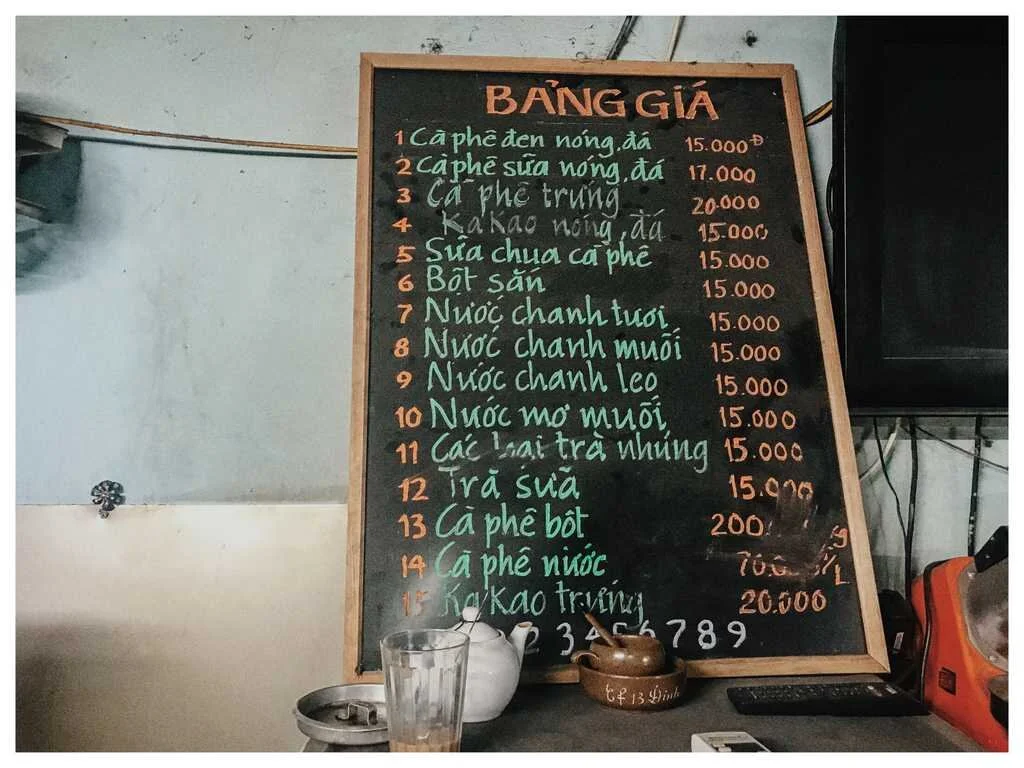 BẢNG GIÁ
1 Cà phê đen nóng, đá 15.000Đ
2 Cà phê sữa nóng, đá 17.000
3 Cà phê trứng 20.000
4 KaKao nóng, đá 15.000
5 Sữa chua cà phê 15.000
6 Bột sắn 15.000
7 Nước chanh tươi 15.000
8 Nước chanh muối 15.000
9 Nước chanh leo 15.000
10 Nước mơ muối 15.000
11 Các loại trà nhúng 15.000
12 Trà sữa 15.000
13 Cà phê bột 200.
14 Cà phê nước /L
15 KaKao trứng 20.000
2 3 4 5 6 7 8 9
Cf 13 Đinh